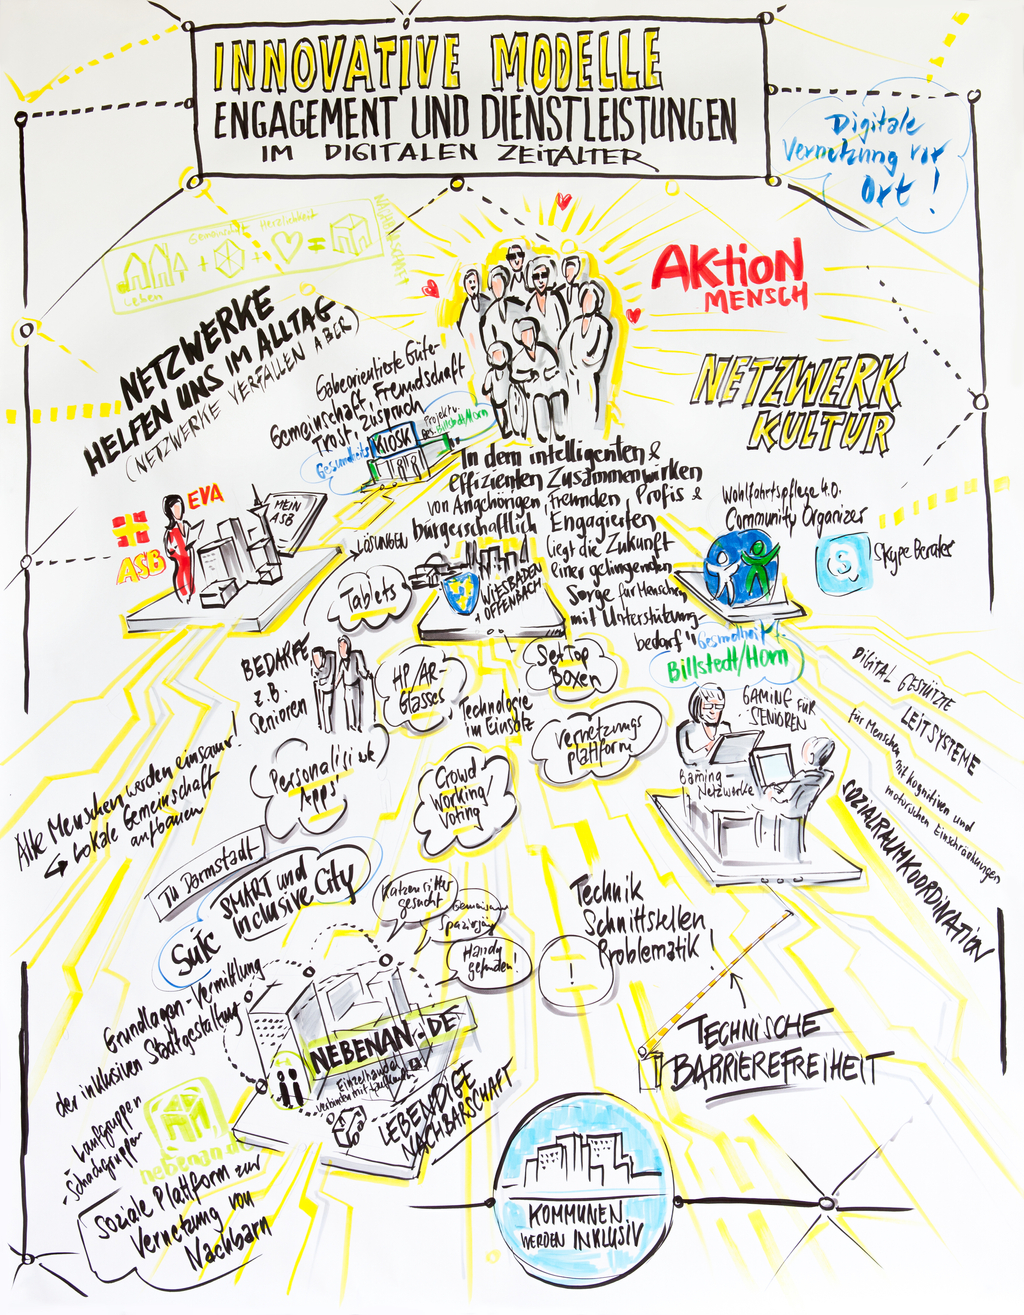 INNOVATIVE MODELLE
ENGAGEMENT UND DIENSTLEISTUNGEN
IM DIGITALEN ZEITALTER
Digitale
Vernetzung vor
Ort!
Gemeinschaft
Herzlichkeit
Leben
NACHBARSCHAFT
AKTION
MENSCH
NETZWERKE
HELFEN UNS IM ALLTAG
(NETZWERKE VERFALLEN ABER)
Gabeorientierte Güte-
Gemeinschaft, Freundschaft
Trost, Zuspruch
Gesundheits
KIOSK
Billstedt/Horn
NETZWERK
KULTUR
In dem intelligenten &
effizienten Zusammenwirken
von Angehörigen, Freunden, Profis &
bürgerschaftlich Engagierten
liegt die Zukunft
einer gelingenden
Sorge für Menschen
mit Unterstützungs-
bedarf"
EVA
ASB
MEIN
ASB
LÖSUNGEN
Tablets
WIESBADEN
OFFENBACH
Wohlfahrtspflege 4.0.
Community Organizer
Skype Berater
Gesundheit f.
Billstedt/Horn
BEDARFE
z.B.
Senioren
HP/AR-
Glasses
Set Top
Boxen
Technologie
im Einsatz
Vernetzungs
plattform
GAMING FÜR
SENIOREN
Gaming-
Netzwerke
DIGITAL GESTÜTZTE
LEITSYSTEME
für Menschen mit kognitiven und
motorischen Einschränkungen
SOZIALRAUMKOORDINATION
Alte Menschen werden einsamer!
Lokale Gemeinschaft
aufbauen
Personalisierte
Apps'
Crowd
Working
Voting
TU Darmstadt
SMART und
Inclusive City
Katzensitter
gesucht
Gemeinsame
Spaziergänge
Handy
gefunden!
Technik
Schnittstellen
Problematik!
!
Grundlagen-Vermittlung
der inklusiven Stadtgestaltung
NEBENAN.DE
Einzelhandel
LEBENDIGE
NACHBARSCHAFT
TECHNISCHE
BARRIEREFREIHEIT
- Laufgruppen
- Schachgruppen
nebenan.de
Soziale Plattform zur
Vernetzung von
Nachbarn
KOMMUNEN
WERDEN INKLUSIV